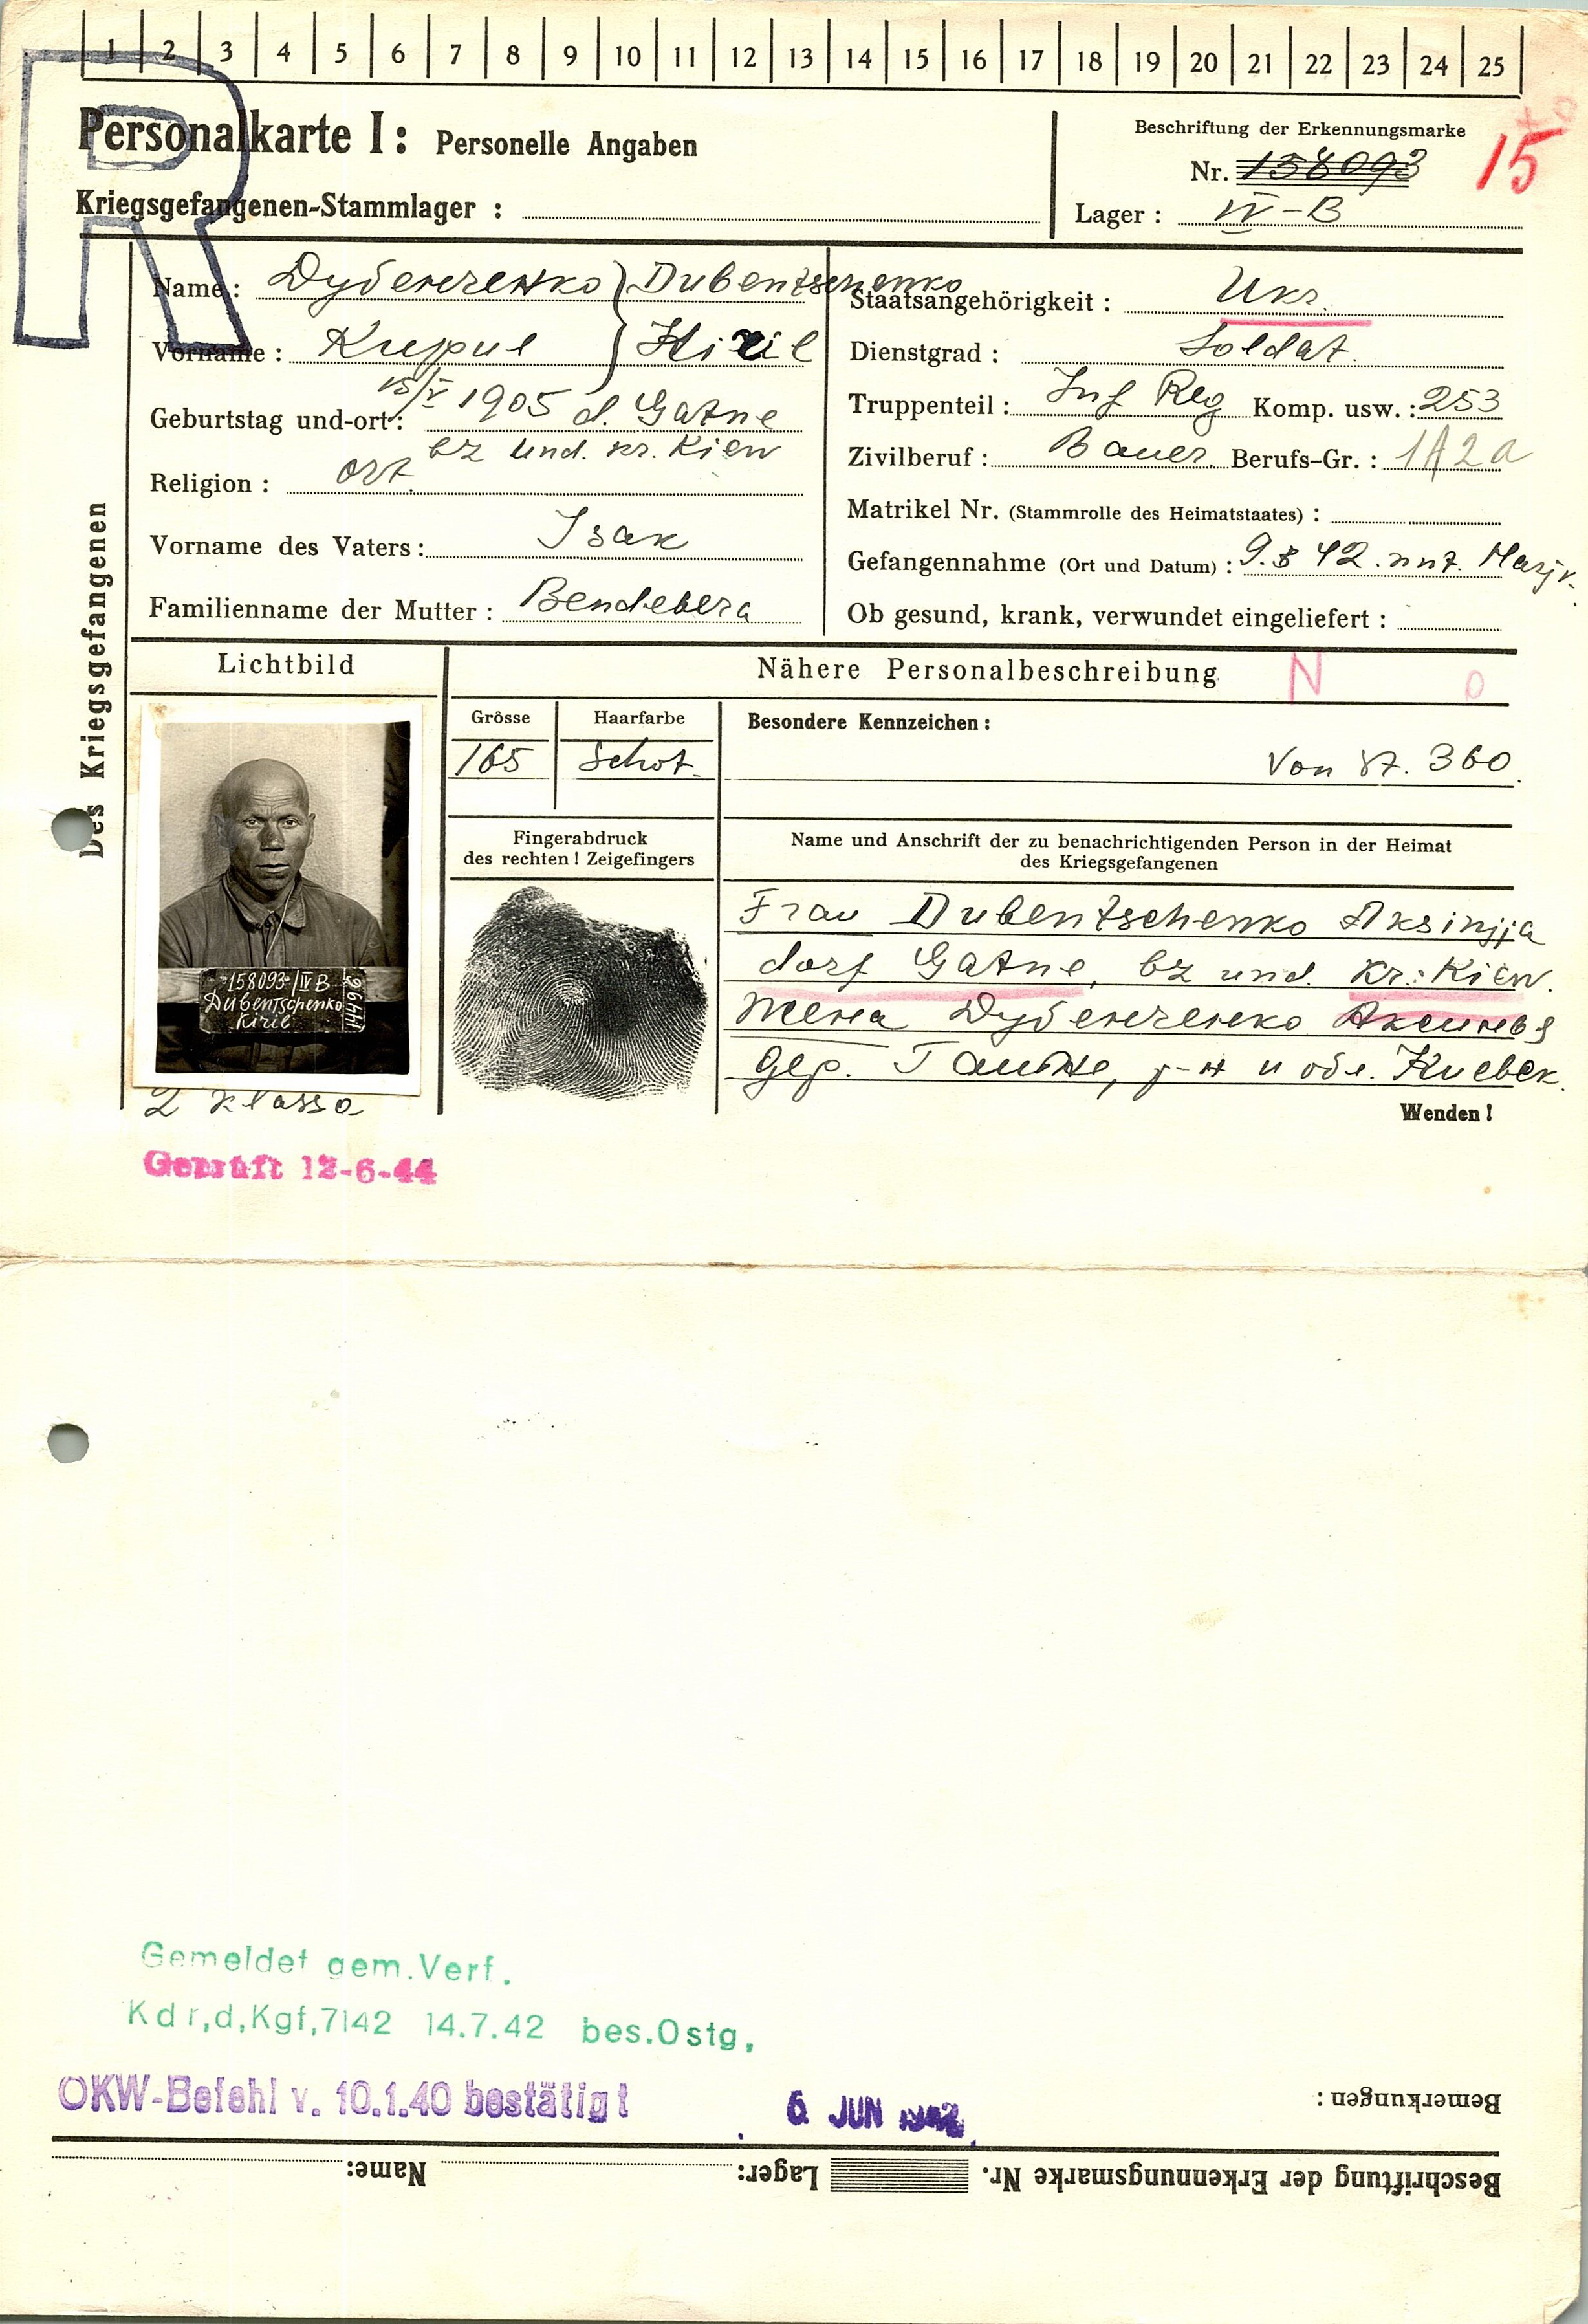 1 2 3 4 5 6 7 8 9 10 11 12 13 14 15 16 17 18 19 20 21 22 23 24 25
R
Personalkarte I: Personelle Angaben
Beschriftung der Erkennungsmarke
Nr. 158093
15
Kriegsgefangenen-Stammlager :
Lager : IV-B
Des Kriegsgefangenen
Name: Дубенченко } Dubentschenko
Vorname : Кирил } Kiril
Geburtstag und-ort: 15/V 1905 d. Gatne
bz und. kr. Kiew
Religion : ort.
Vorname des Vaters: Isak
Familienname der Mutter : Bendebera
Staatsangehörigkeit : Ukr.
Dienstgrad : Soldat.
Truppenteil : Inf Reg Komp. usw. : 253
Zivilberuf : Bauer. Berufs-Gr. : 1A2a
Matrikel Nr. (Stammrolle des Heimatstaates) :
Gefangennahme (Ort und Datum) : 9. 42.
Ob gesund, krank, verwundet eingeliefert :
Lichtbild
Nähere Personalbeschreibung
N 0
Grösse
165
Haarfarbe
Besondere Kennzeichen:
Von St. 360.
Fingerabdruck
des rechten! Zeigefingers
Name und Anschrift der zu benachrichtigenden Person in der Heimat
des Kriegsgefangenen
Frau Dubentschenko Aksinjja
dorf Gatne, bz und. Kr: Kiew.
Жена Дубенченко
Дер. р-н и обл. Киевск.
158093 / IV B
Dubentschenko
Kiril
14496
2 klassa
Wenden!
Geprüft 12-6-44
Gemeldet gem.Verf.
Kdr,d,Kgf,7142 14.7.42 bes.Ostg,
OKW-Befehl v. 10.1.40 bestätigt 6. JUN 1942
Bemerkungen :
Beschriftung der Erkennungsmarke Nr. Lager: Name: